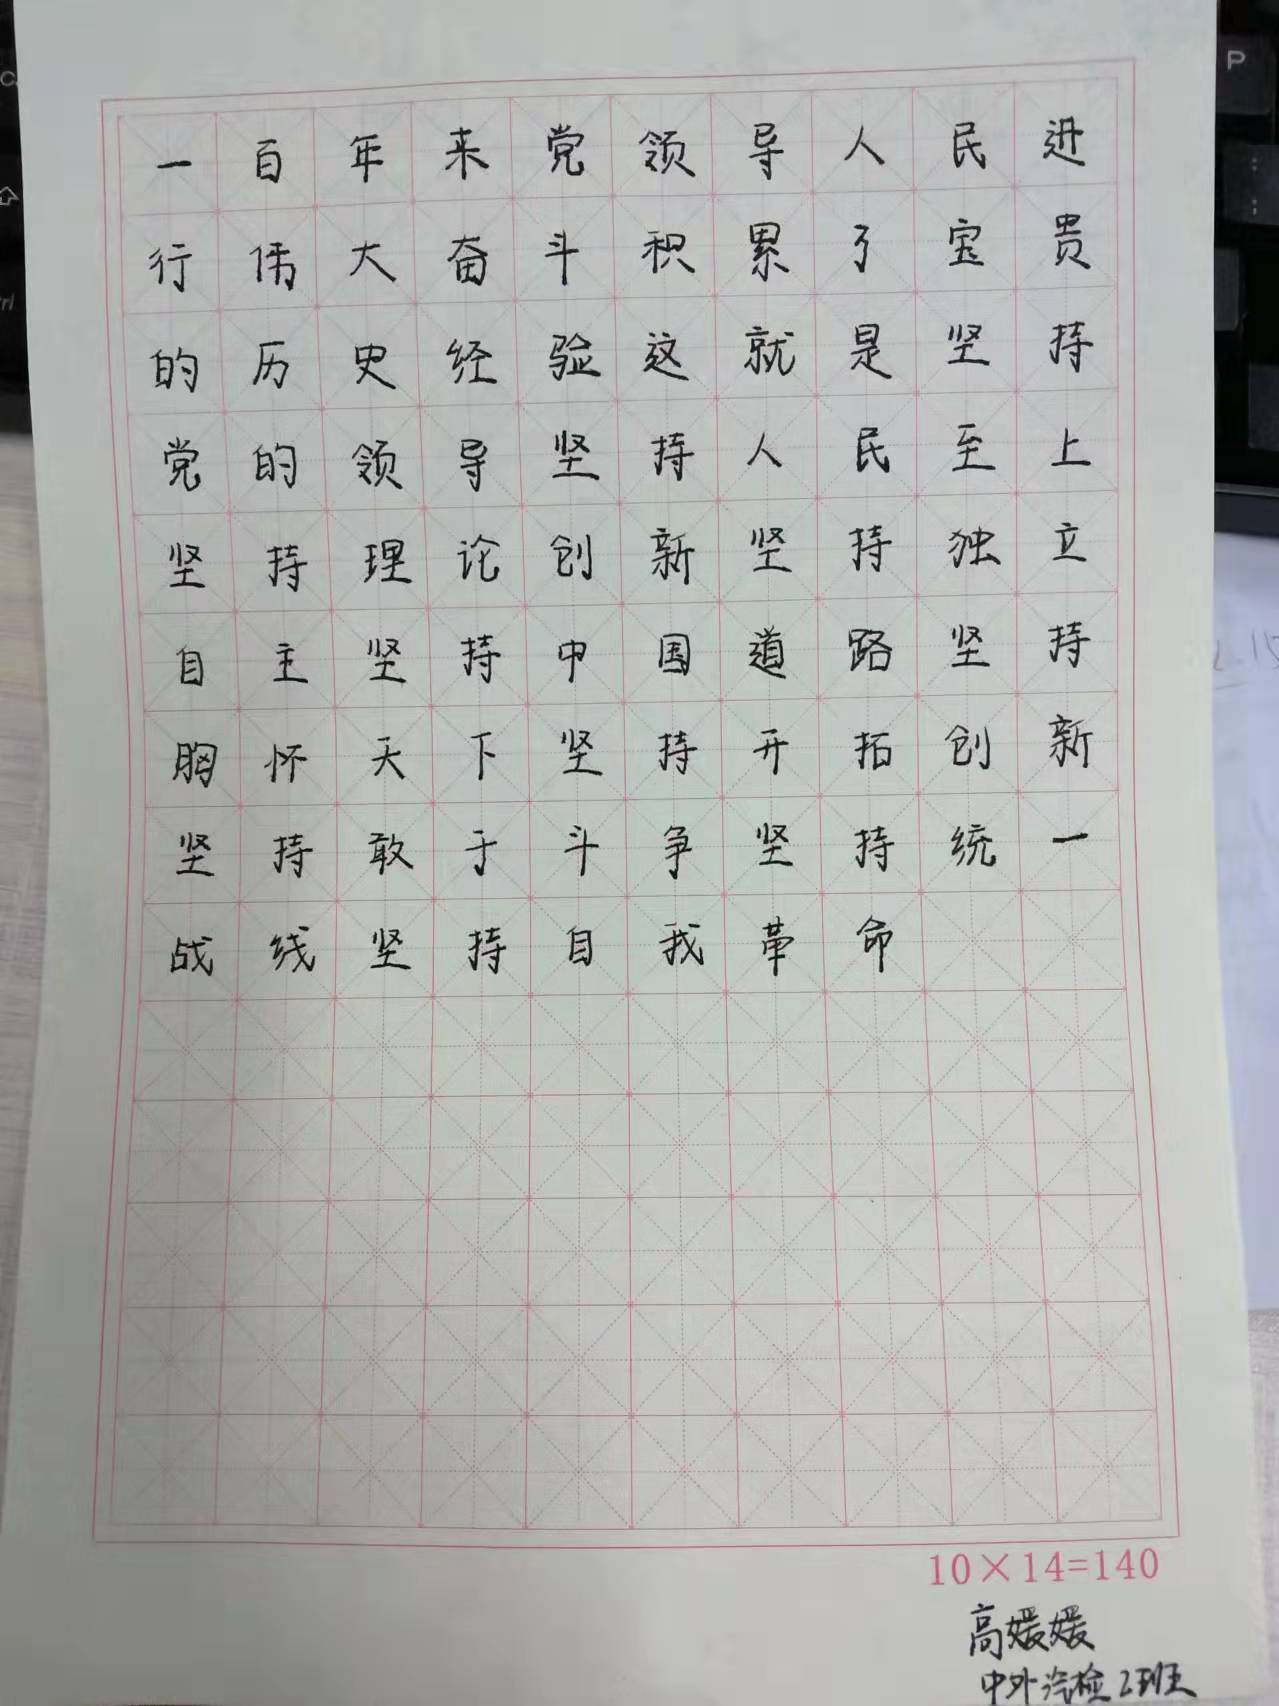 一百年来党领导人民进
行伟大奋斗积累了宝贵
的历史经验这就是坚持
党的领导坚持人民至上
坚持理论创新坚持独立
自主坚持中国道路坚持
胸怀天下坚持开拓创新
坚持敢于斗争坚持统一
战线坚持自我革命
10×14=140
高媛媛
中外汽检2班
P